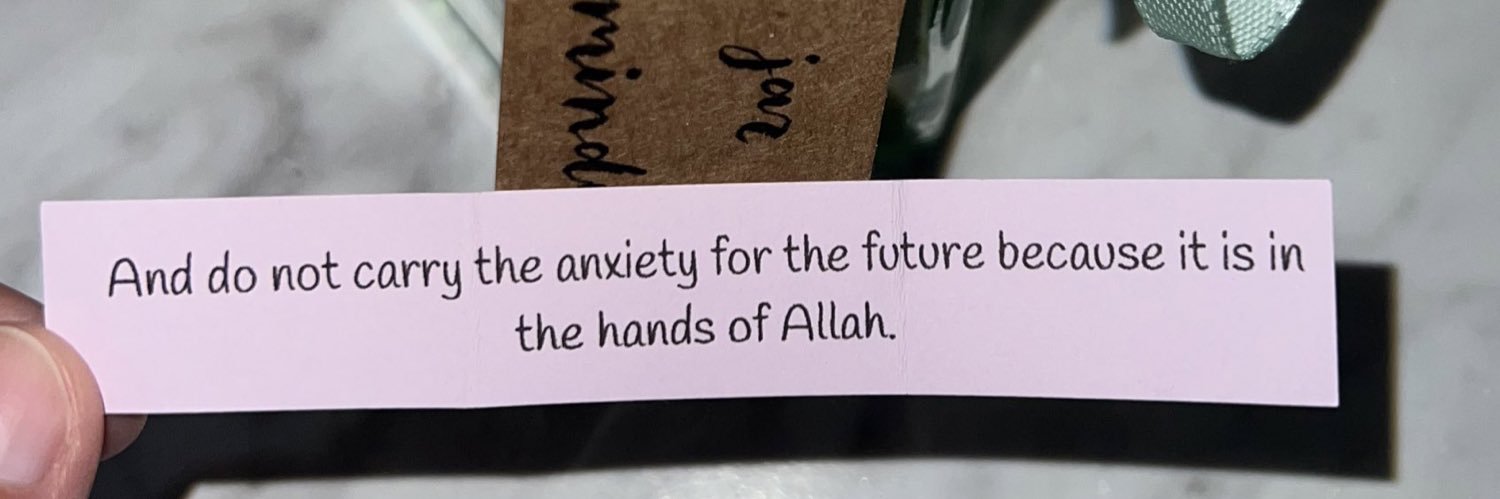 jar
mind
And do not carry the anxiety for the future because it is in
the hands of Allah.